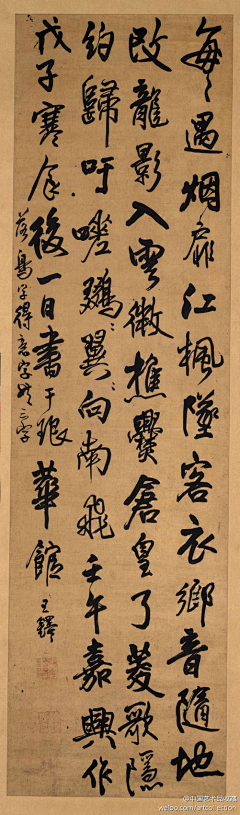 每〻遇烟扉江楓墜客衣鄉音隨地
改龍影入雲微樵爨倉皇了菱歌隱
約歸吁嗟鷄〻翼〻向南飛壬午嘉興作
戊子寒食後一日書于琅華館王鐸
落鳥字得意字共三字
@中国艺术品收藏
weibo.com/artcollection